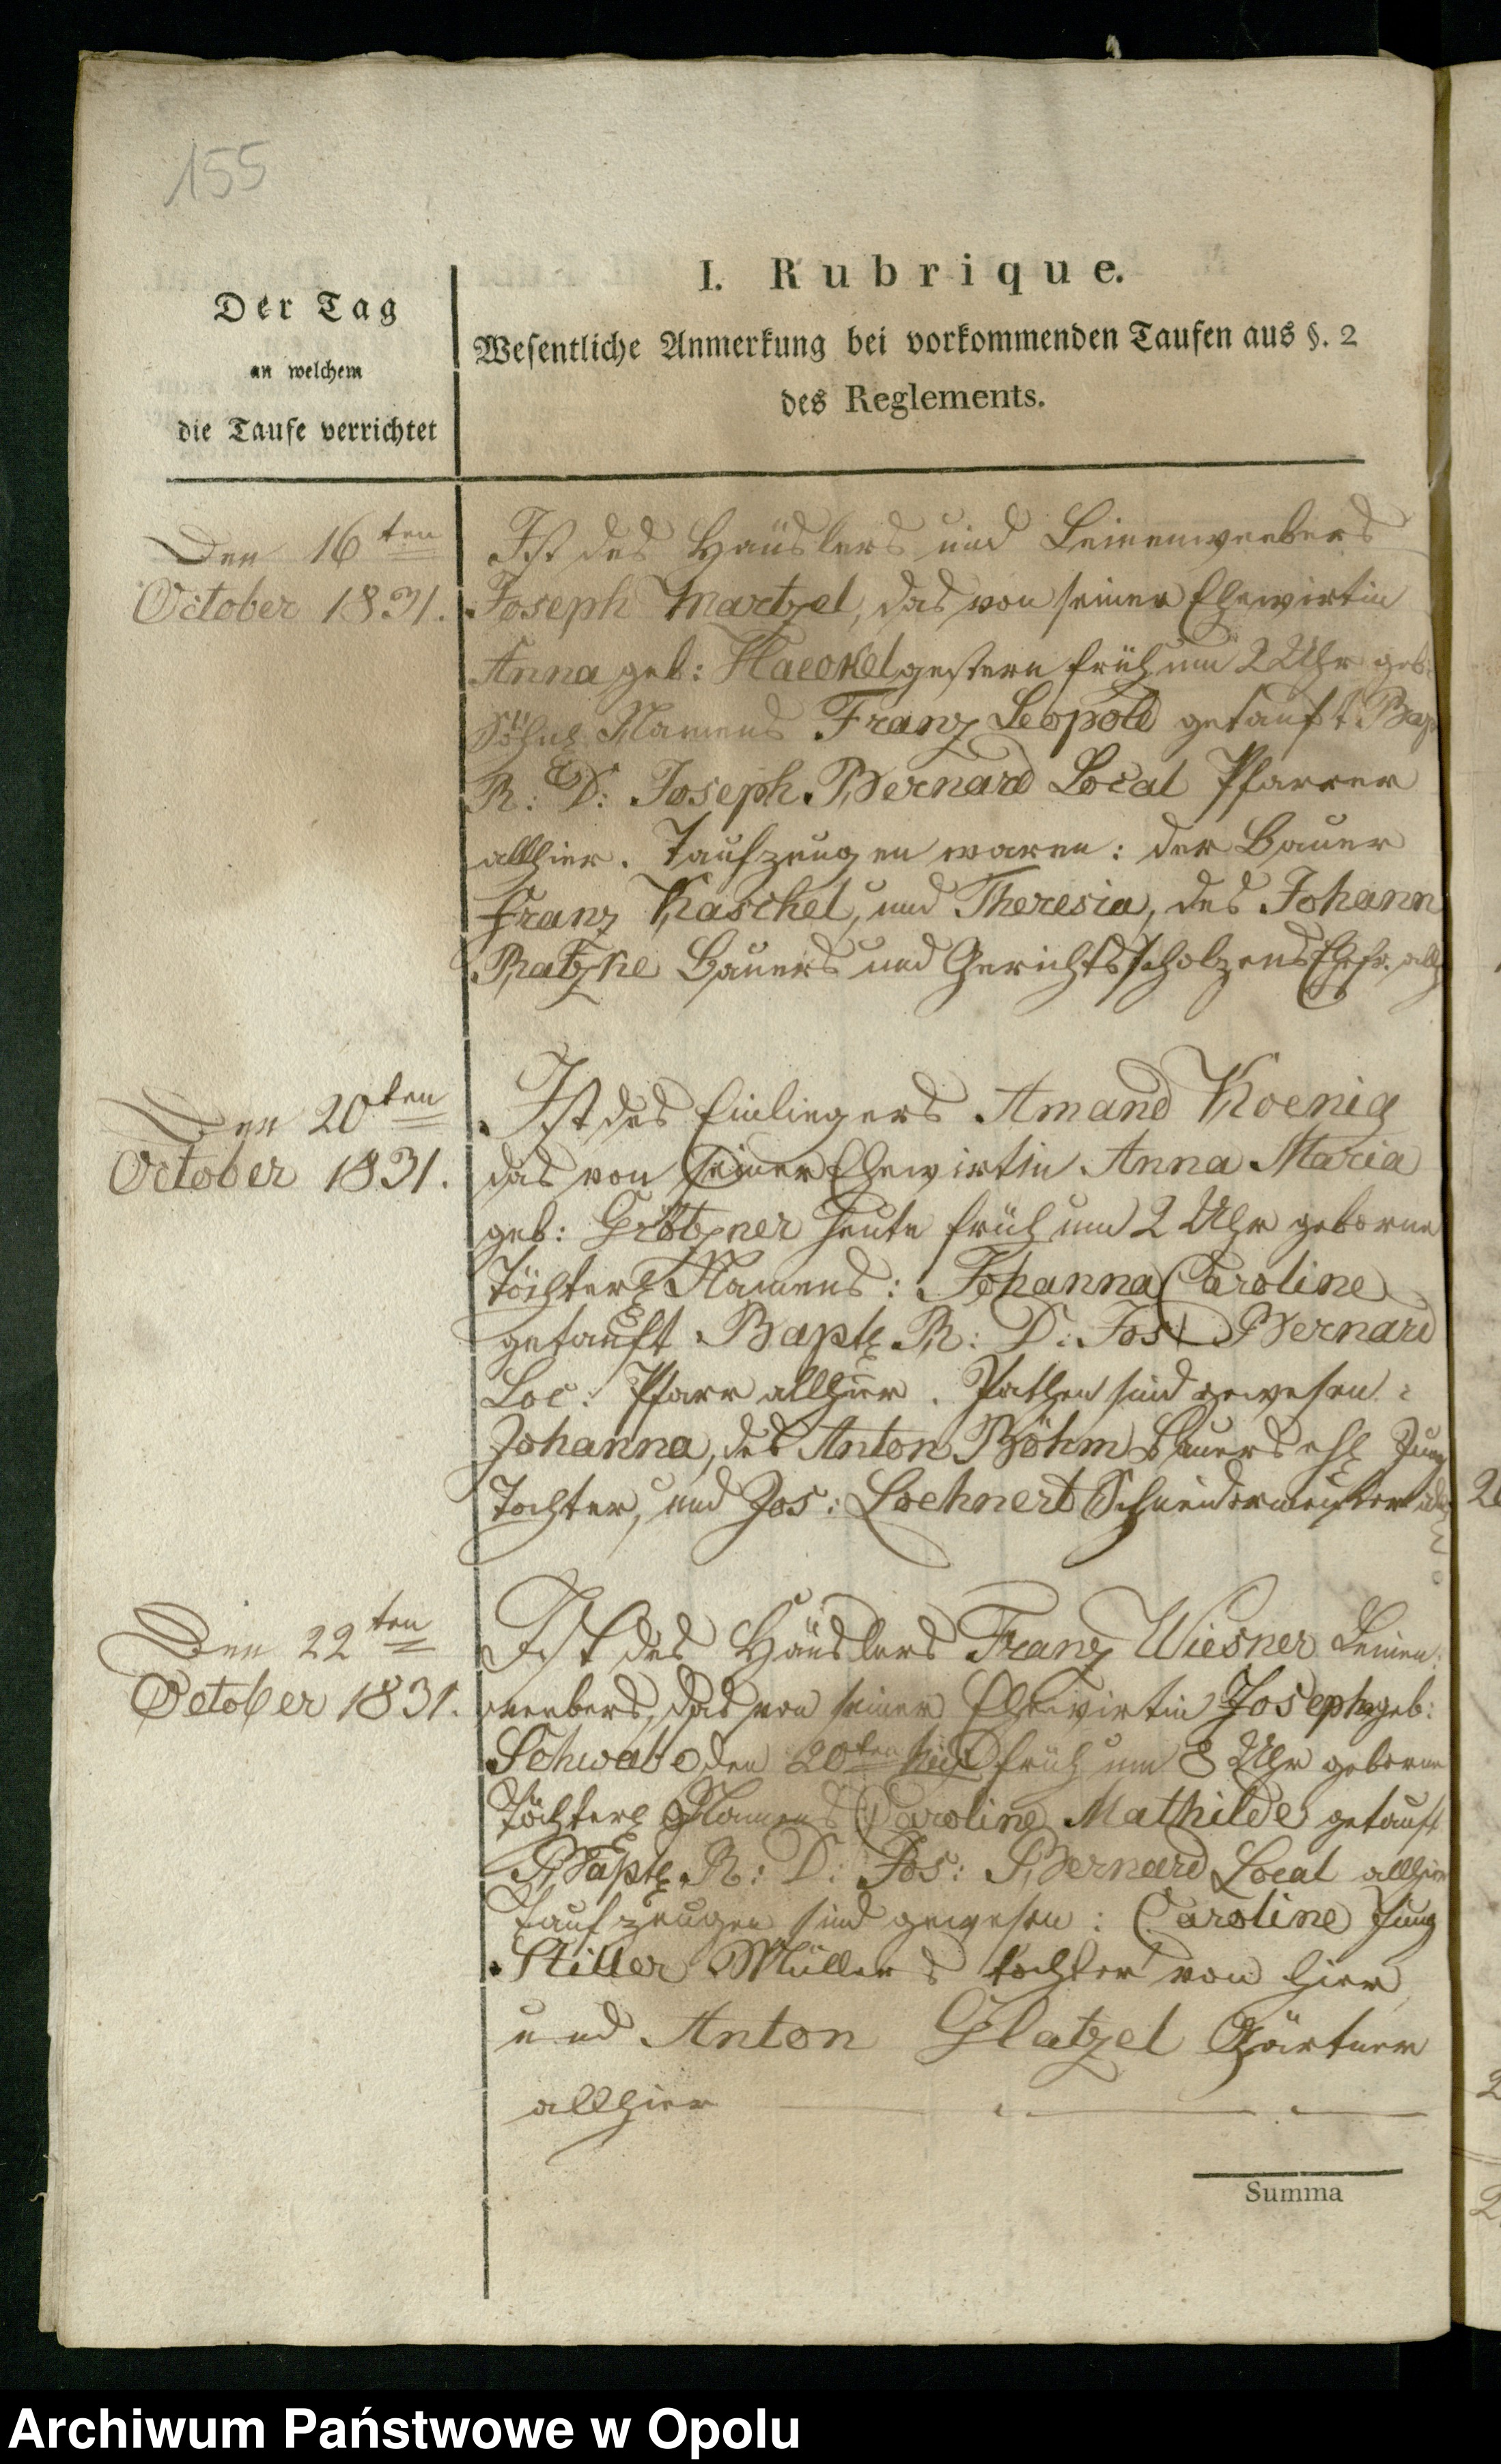 155
Der Tag
an welchem
die Taufe verrichtet
I. Rubrique.
Wesentliche Anmerkung bei vorkommenden Taufen aus §. 2
des Reglements.
Den 16ten
October 1831.
Ist des Häuslers und Leinenweebers
Joseph Martzel, das von seiner Ehewirtin
Anna geb: Haeckel gestern früh um 2 Uhr geb:
Söhnl Namens Franz Leopold getauft
R: D: Joseph Bernard Local Pfarrer
allhier. Taufzeugen waren: der Bauer
Franz Kaschel, und Theresia, des Johann
Ratzke Bauers und Gerichtsscholzens Ehefr. allh
Den 20ten
October 1831.
Ist des Einliegers Amand Koenig
das von seiner Ehewirtin Anna Maria
geb: Götzner heute früh um 2 Uhr geborne
Töchterl Namens: Johanna Caroline
getauft Baptz R: D: Jos Bernard
Loc: Pfarr allhier. Pathen sind gewesen:
Johanna, des Anton Böhm Bauers ehl Jung
Tochter, und Jos: Loehnert Schneidermeister
Den 22ten
October 1831.
Ist des Häuslers Franz Wiesner Leinen:
weebers, das von seiner Ehewirtin Josepha geb:
Schwabe den 20ten früh um 8 Uhr geborne
Töchterl Namens Caroline Mathilde getauft
Baptz R: D: Jos: Bernard Local allhier
Taufzeugen sind gewesen: Caroline Jung
Stiller Müllers tochter von hier
und Anton Glatzel Gärtner
allhier
Summa
Archiwum Państwowe w Opolu